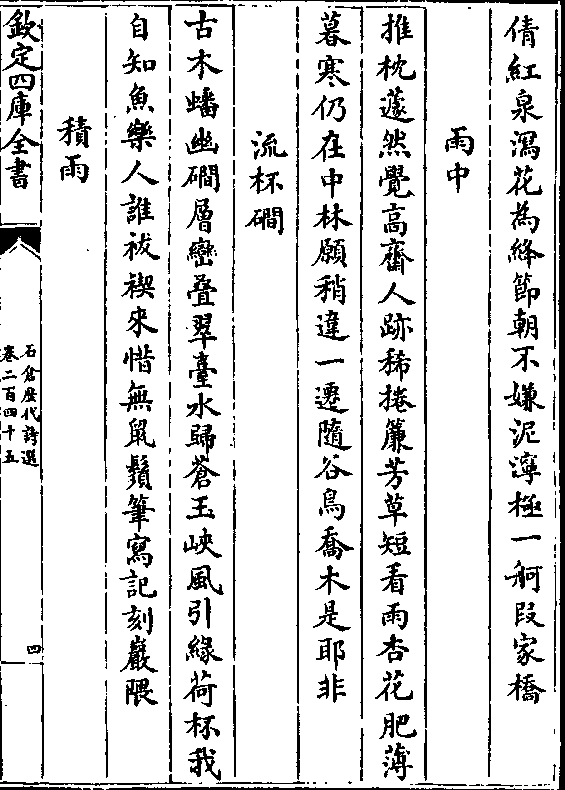 倩紅泉瀉花為絳節朝不嫌泥濘極一舸段家橋
雨中
推枕蘧然覺高齋人跡稀捲簾芳草短看雨杏花肥薄
暮寒仍在中林願稍違一遷隨谷鳥喬木是耶非
流杯磵
古木蟠幽磵層巒疊翠臺水歸蒼玉峽風引緑荷杯我
自知魚樂人誰祓禊來惜無鼠鬚筆寫記刻巖隈
積雨
欽定四庫全書
石倉歷代詩選
卷二百四十五
四